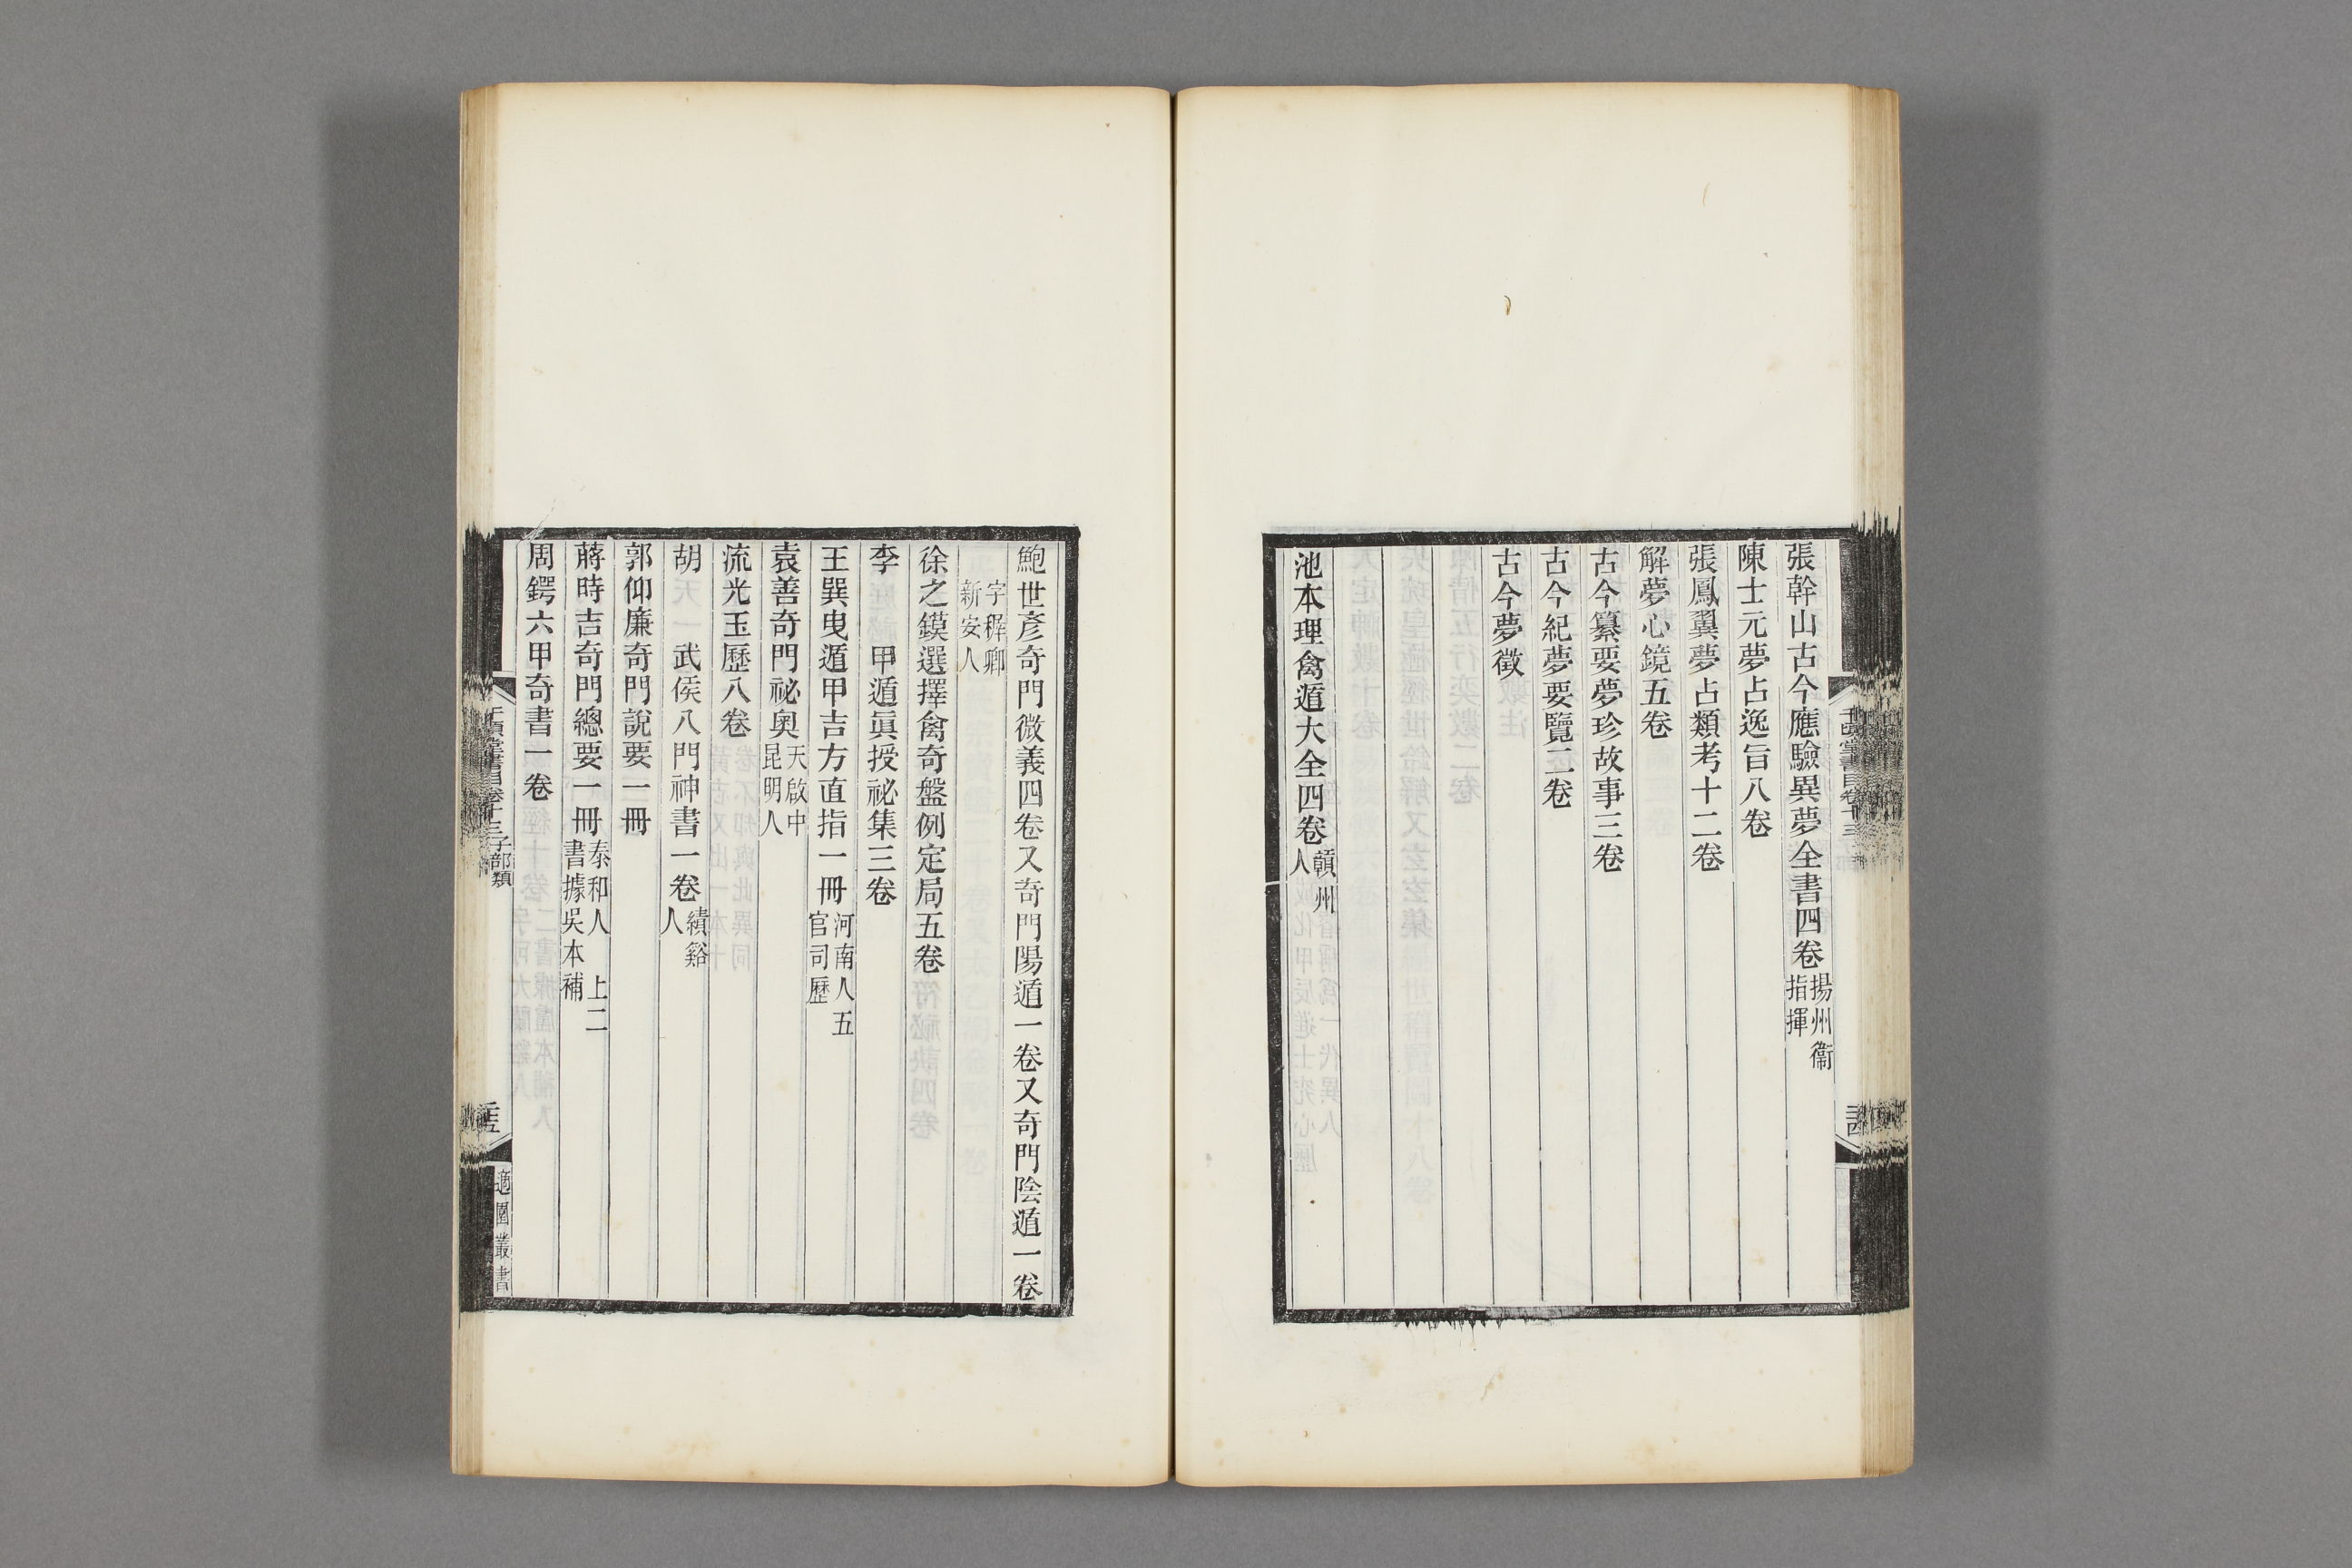 張幹山古今應驗異夢全書四卷揚州衞指揮
陳士元夢占逸旨八卷
張鳳翼夢占類考十二卷
解夢心鏡五卷
古今纂要夢珍故事三卷
古今紀夢要覽二卷
古今夢徵
池本理禽遁大全四卷贛州人
鮑世彥奇門微義四卷又奇門陽遁一卷又奇門陰遁一卷
字穉卿新安人
徐之鏌選擇禽奇盤例定局五卷
李　　甲遁眞授祕集三卷
王巽曳遁甲吉方直指一冊河南人五官司歷
袁善奇門祕奧天啟中昆明人
流光玉歷八卷
胡　　武侯八門神書一卷績谿人
郭仰廉奇門說要一冊
蔣時吉奇門總要一冊泰和人　上二書據吳本補
周鍔六甲奇書一卷
千頃堂書目卷十三子部類
適園叢書